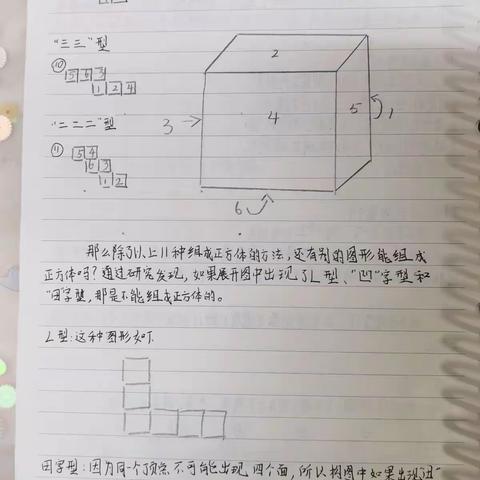 "三三"型
⑩
5 6 3
1 2 4
"二二二"型
⑪
5 4
6 3
1 2
2
3
4
5
1
6
那么除了以上11种组成正方体的方法，还有别的图形能组成
正方体吗？通过研究发现，如果展开图中出现了L型、"凹"字型和
"田"字型，那是不能组成正方体的。
L型：这种图形如下
田字型：因为同一个顶点不可能出现四个面，所以构图中如果出现了"田"